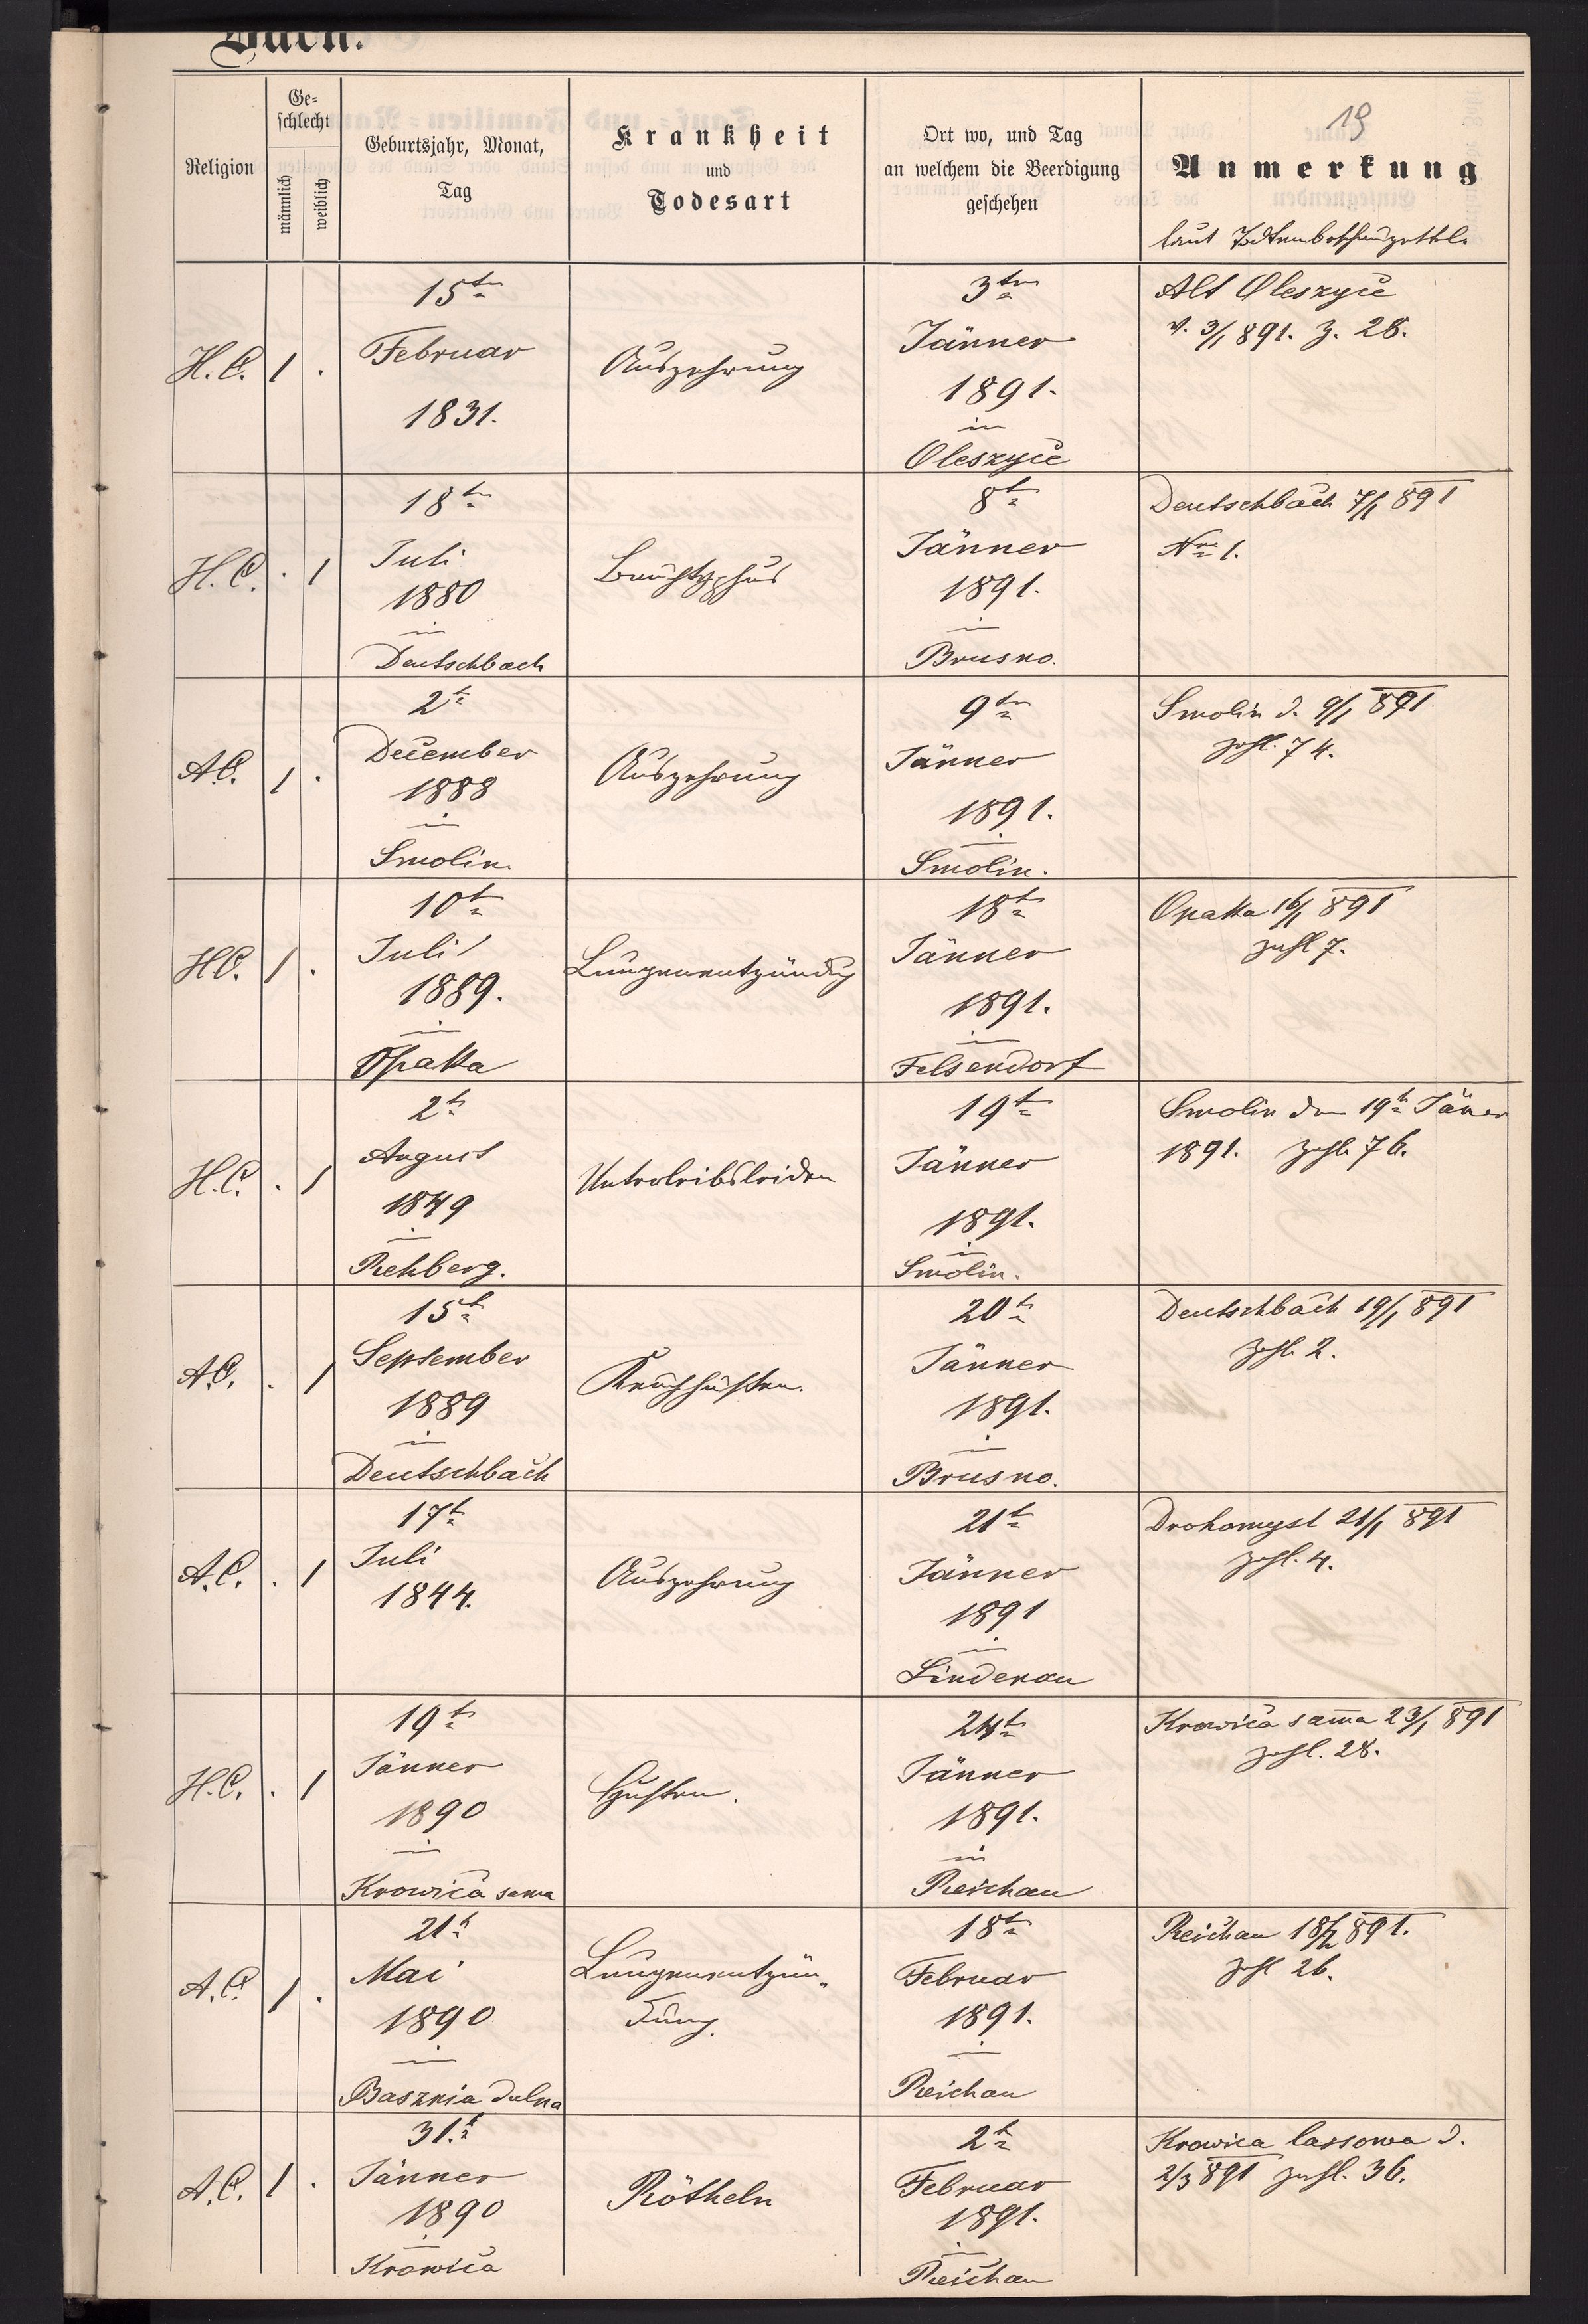 Buch.
19
Religion
Ge=
schlecht
männlich
weiblich
Geburtsjahr, Monat,
Tag
Krankheit
und
Todesart
Ort wo, und Tag
an welchem die Beerdigung
geschehen
Anmerkung
laut Todtenbeschauzettel.
H. C. 1 .
15t
Februar
1831.
Auszehrung
3ten
Jänner
1891.
in
Oleszyce
Alt Oleszyce
v. 3/1 891. Z. 28.
H. C. . 1
18t
Juli
1880
in
Deutschbach
Bauchtyphus
8t
Jänner
1891.
in
Brusno.
Deutschbach 7/1 891
Nro 1.
A.C. 1 .
2t
December
1888
in
Smolin.
Auszehrung
9t
Jänner
1891.
in
Smolin.
Smolin d. 9/1 891
Zahl. 74.
HC. 1 .
10t
Juli
1889.
in
Opaka
Lungenentzündung
18t
Jänner
1891.
in
Felsendorf
Opaka 16/1 891
Zahl 7.
H.C. . 1
2t
August
1849
in
Rehberg.
Unterleibsleiden
19t
Jänner
1891.
in
Smolin.
Smolin den 19t Jäner
1891. Zahl 76.
A.C. . 1
15t
September
1889
in
Deutschbach
Keuchhusten.
20t
Jänner
1891.
in
Brusno.
Deutschbach 19/1 891
Zahl 2.
A.C. . 1
17t
Juli
1844.
Auszehrung
21t
Jänner
1891
in
Lindenau
Drohomysl 21/1 891
Zahl. 4.
H.C. . 1
19t
Jänner
1890
in
Krowica sama
Husten.
24t
Jänner
1891.
in
Reichau
Krowica sama 23/1 891
Zahl. 28.
A.C. 1 .
21t
Mai
1890
in
Basznia dolna
Lungenentzün„
dung.
18t
Februar
1891.
in
Reichau
Reichau 18/2 891.
Zahl 26.
A.C. 1 .
31.t
Jänner
1890
in
Krowica
Rötheln
2t
Februar
1891.
in
Reichau
Krowica lassowa d.
2/3 891 Zahl. 36.